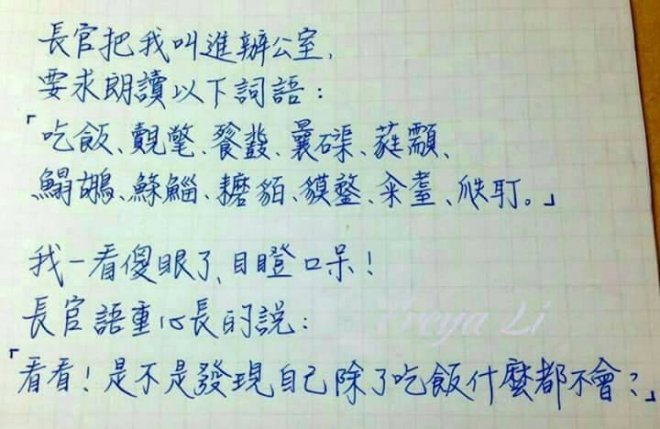 長官把我叫進辦公室,
要求朗讀以下詞語:
「吃飯、覿氅、餮鼗、曩磲、蕤顬、
鰨鶘、鯀鯔、耱貊、貘鏊、籴耋、瓞耵。」
我一看傻眼了,目瞪口呆!
長官語重心長的說:
「看看!是不是發現自己除了吃飯什麼都不會?」
reya Li